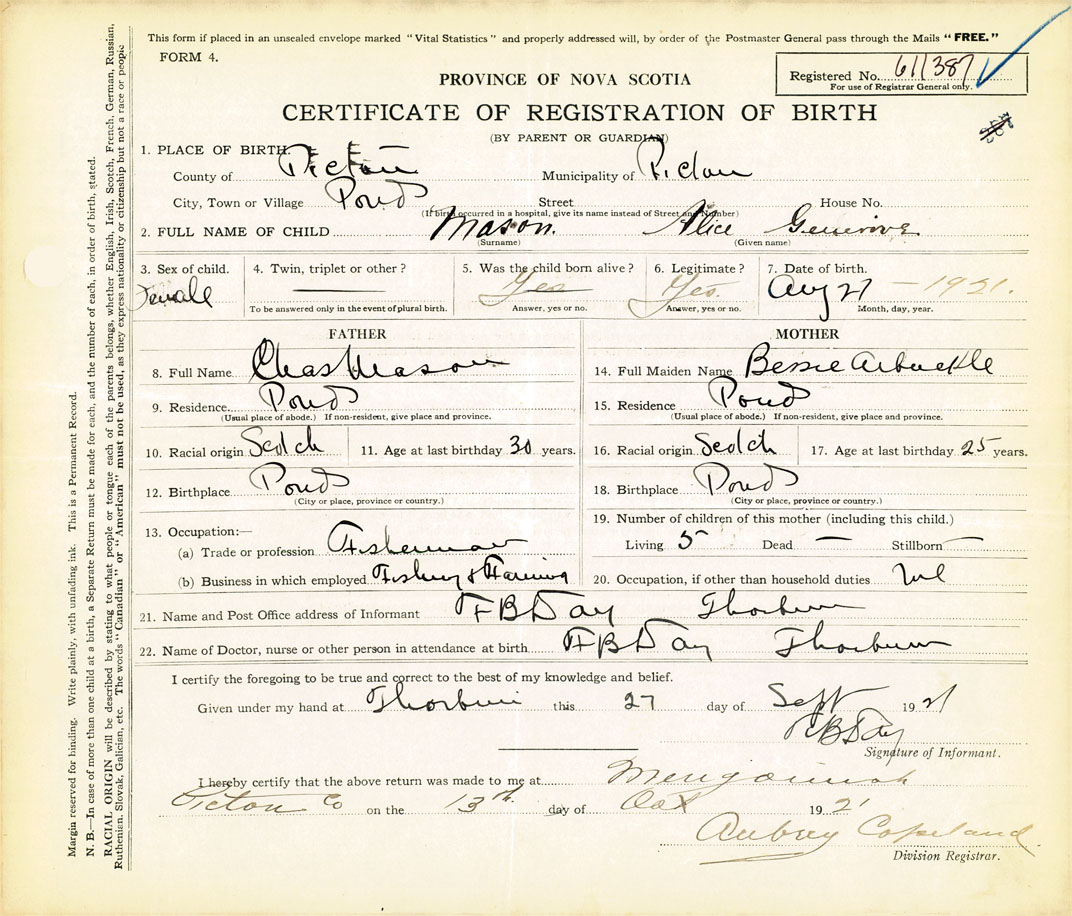 This form if placed in an unsealed envelope marked "Vital Statistics" and properly addressed will, by order of the Postmaster General pass through the Mails "FREE."
FORM 4.
PROVINCE OF NOVA SCOTIA
Registered No. 611387
For use of Registrar General only.
CERTIFICATE OF REGISTRATION OF BIRTH
(BY PARENT OR GUARDIAN)
1. PLACE OF BIRTH.
County of Pictou Municipality of Pictou
City, Town or Village Pond Street House No.
(If birth occurred in a hospital, give its name instead of Street and Number)
2. FULL NAME OF CHILD Mason. Alice Generive
(Surname) (Given name)
3. Sex of child. 4. Twin, triplet or other? 5. Was the child born alive? 6. Legitimate? 7. Date of birth.
Female — Yes Yes. Aug 27 - 1921.
To be answered only in the event of plural birth. Answer, yes or no. Answer, yes or no. Month, day, year.
FATHER
8. Full Name Chas Mason
9. Residence Pond
(Usual place of abode.) If non-resident, give place and province.
10. Racial origin Scotch 11. Age at last birthday 30 years.
12. Birthplace Pond
(City or place, province or country.)
13. Occupation:—
(a) Trade or profession Fisherman
(b) Business in which employed Fishing & Farming
MOTHER
14. Full Maiden Name Bessie Arbuckle
15. Residence Pond
(Usual place of abode.) If non-resident, give place and province.
16. Racial origin Scotch 17. Age at last birthday 25 years.
18. Birthplace Pond
(City or place, province or country.)
19. Number of children of this mother (including this child.)
Living 5 Dead — Stillborn —
20. Occupation, if other than household duties
21. Name and Post Office address of Informant F B Day Thorburn
22. Name of Doctor, nurse or other person in attendance at birth F B Day Thorburn
I certify the foregoing to be true and correct to the best of my knowledge and belief.
Given under my hand at Thorburn this 27 day of Sept 1921
F B Day
Signature of Informant.
I hereby certify that the above return was made to me at
Picton Co on the 13th day of Oct 1921
Aubrey Copeland
Division Registrar.
Margin reserved for binding. Write plainly, with unfading ink. This is a Permanent Record.
N. B.—In case of more than one child at a birth, a Separate Return must be made for each, and the number of each, in order of birth, stated.
RACIAL ORIGIN will be described by stating to what people or tongue each of the parents belongs, whether English, Irish, Scotch, French, German, Russian,
Ruthenian, Slovak, Galician, etc. The words "Canadian" or "American" must not be used, as they express nationality or citizenship but not a race or people